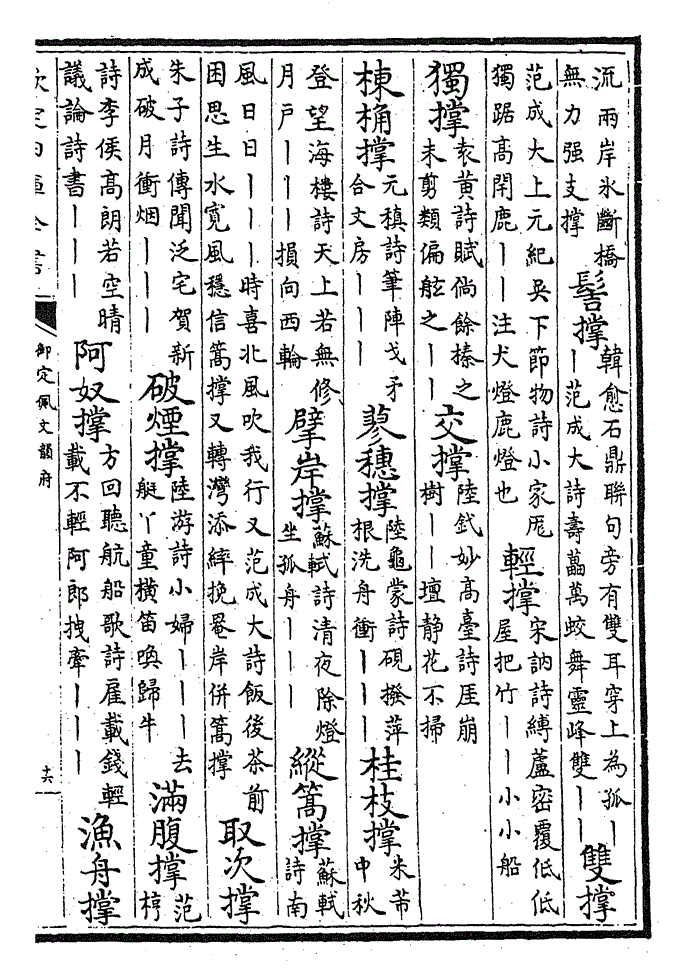 流兩岸氷斷橋
無力强支撑
髻撑
韓愈石鼎聯句旁有雙耳穿上為孤丨
丨范成大詩壽藟萬蛟舞靈峰雙丨丨
雙撑
范成大上元紀吳下節物詩小家厖
獨踞高閈鹿丨丨注犬燈鹿燈也
輕撑
宋訥詩縛蘆密覆低低
屋把竹丨丨小小船
獨撑
袁黄詩賦倘餘榛之
未剪類偏舷之丨丨
交撑
陸弑妙高臺詩厓崩
樹丨丨壇静花不掃
棟桷撑
元稹詩筆陣戈矛
合文房丨丨丨
蓼穗撑
陸龜蒙詩硯撥萍
根洗舟衝丨丨丨
桂枝撑
米芾
中秋
登望海樓詩天上若無修
月户丨丨丨損向西輪
擘岸撑
蘇軾詩清夜除燈
坐孤舟丨丨丨
縱篙撑
蘇軾
詩南
風日日丨丨丨時喜北風吹我行又范成大詩飯後茶前
困思生水寛風穩信篙撑又轉灣添縴挽罨岸併篙撑
取次撑
朱子詩傳聞泛宅賀新
成破月衝烟丨丨丨
破煙撑
陸游詩小婦丨丨丨去
艇丫童横笛喚歸牛
滿腹撑
范
梈
詩李侯髙朗若空晴
議論詩書丨丨丨
阿奴撑
方回聽航船歌詩雇載錢輕
載不輕阿郎拽縴丨丨丨
漁舟撑
欽定四庫全書
御定佩文韻府
十六